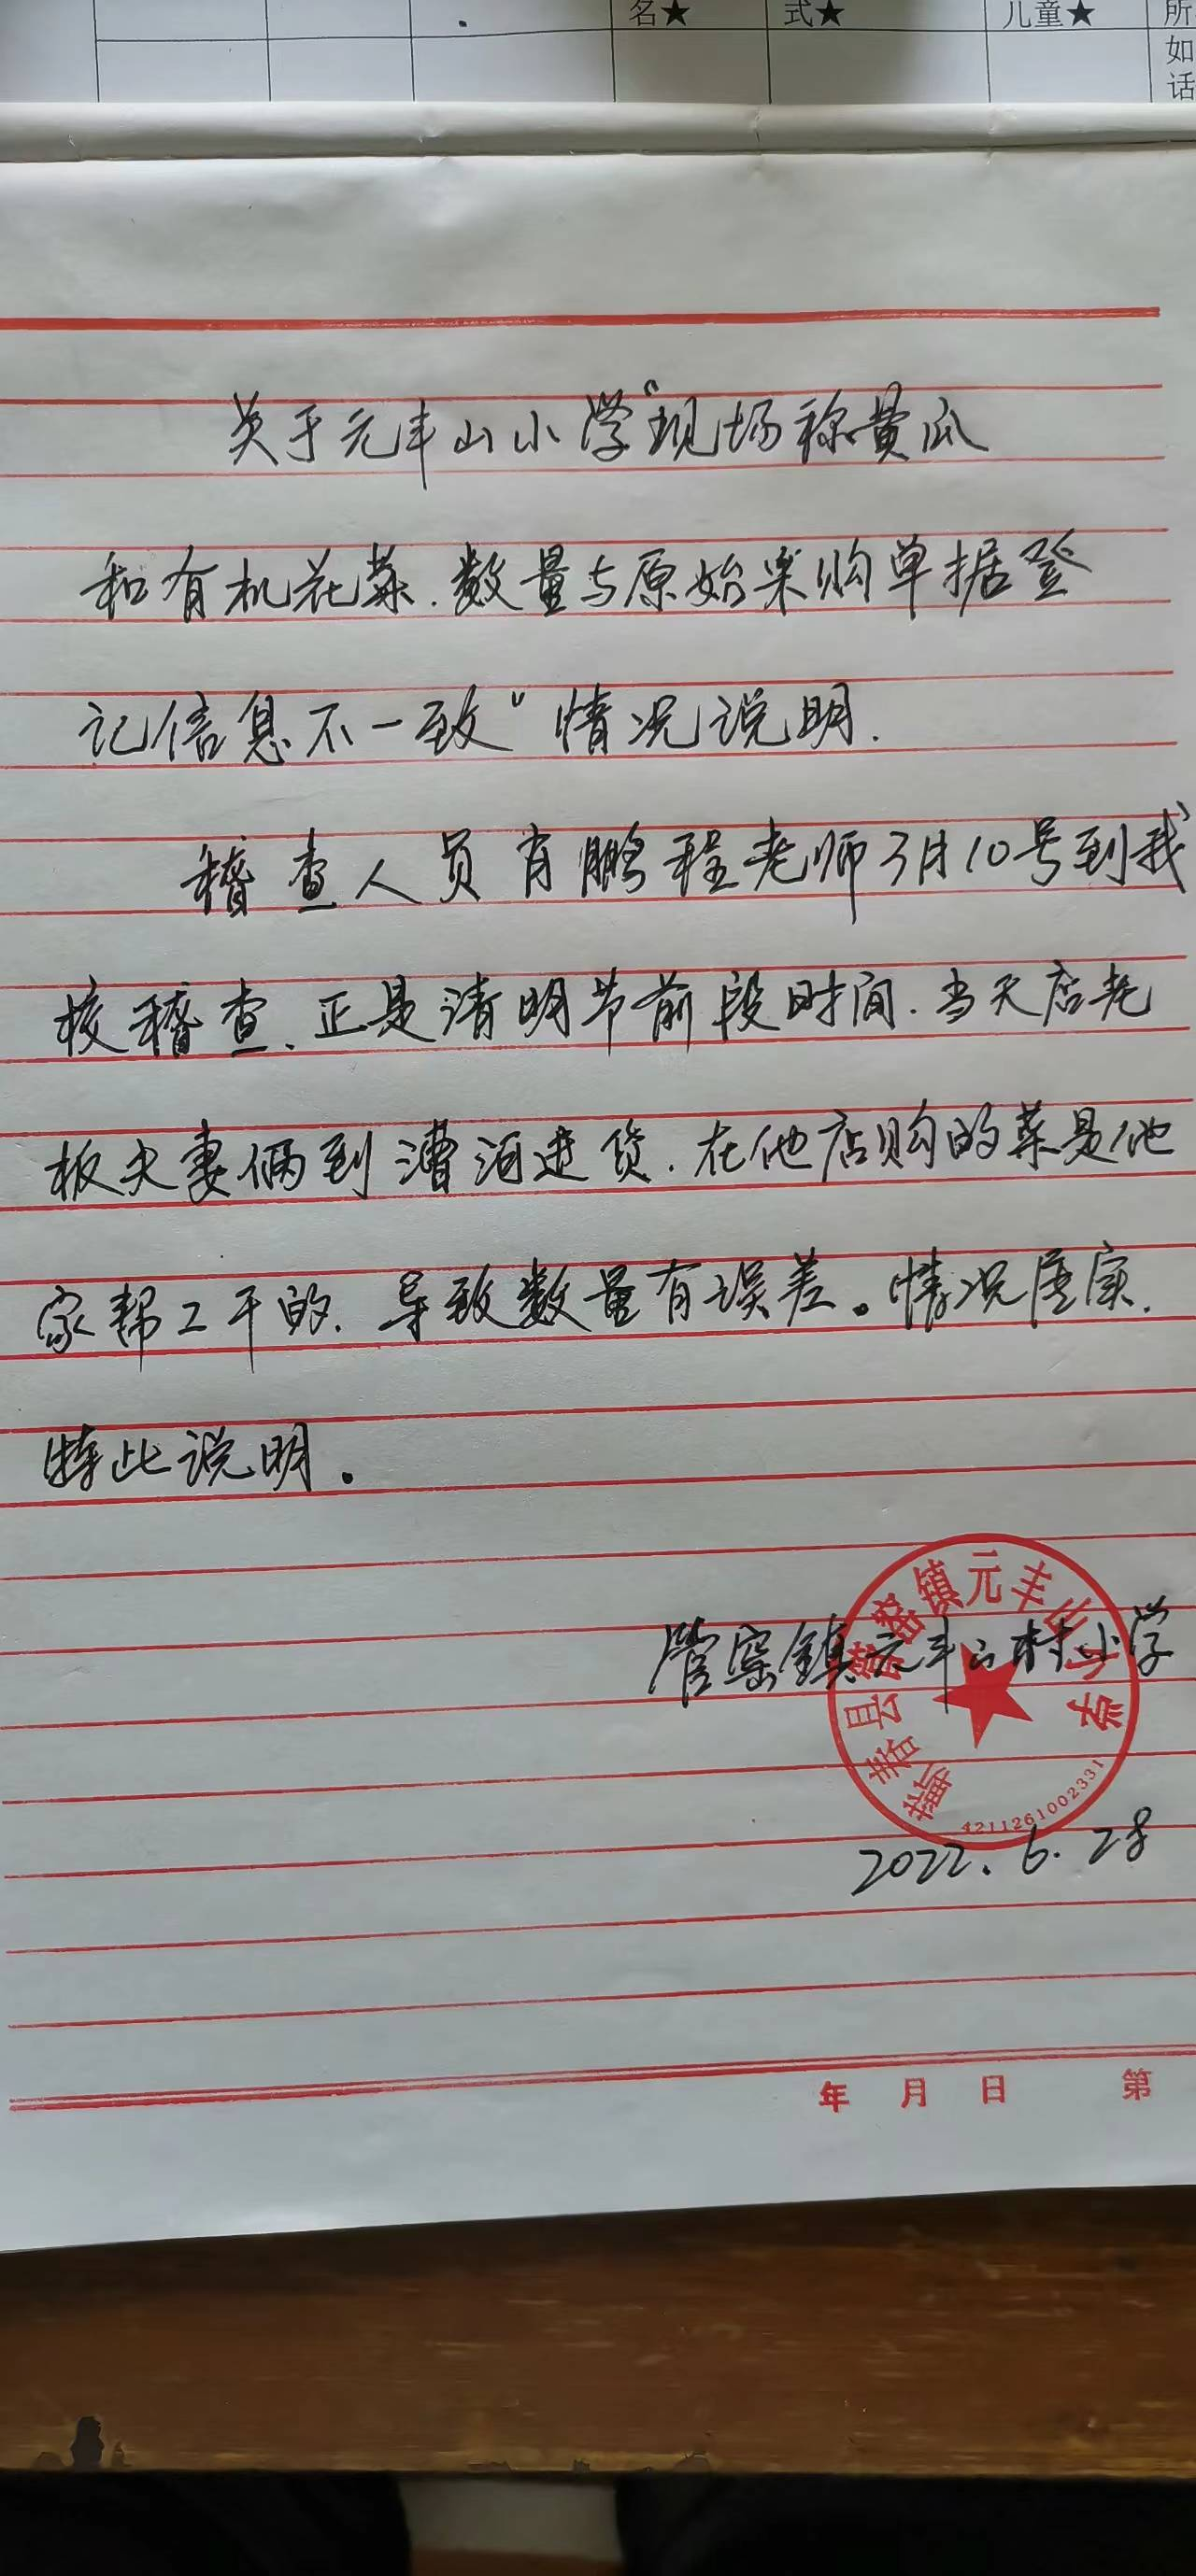 名★ 式★ 儿童★ 所
如
话
关于元丰山小学“现场称黄瓜
和有机花菜.数量与原始采购单据登
记信息不一致”情况说明.
稽查人员肖鹏程老师3月10号到我
校稽查、正是清明节前段时间.当天店老
板夫妻俩到漕河进货.在他店购的菜是他
家帮工干的.导致数量有误差。情况属实.
特此说明.
管窑镇元丰山村小学
蕲春县管窑镇元丰山小学
4211261002331
2022.6.28
年 月 日 第